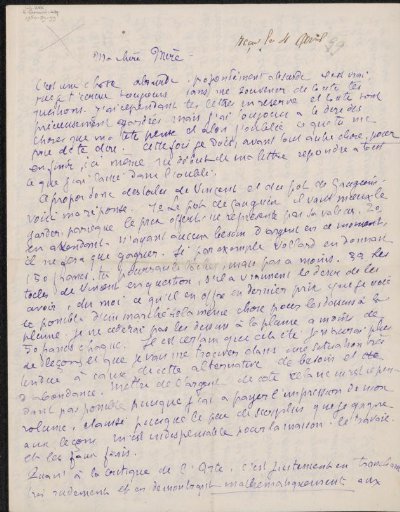 Ma chère Mère
Reçu le 4 Avril 99
C'est une chose absurde, profondément absurde
que je t'écrive toujours sans me souvenir de toutes tes
questions. J'ai cependant tes lettres en réserve et toutes sont
précieusement gardées mais j'ai toujours à te dire des
choses que ma tête pense et alors j'oublie ce que tu me
pries de te dire. Cette fois je dois, avant tout autre chose, pour
en finir, ici même au début de ma lettre répondre à tout
ce que j'ai laissé dans l'oubli.
A propos donc des toiles de Vincent et du pot de Gauguin
voici ma réponse. 1º Le pot de Gauguin il vaut mieux le
garder parce que le prix offert ne représente pas sa valeur.
en attendant n'ayant aucun besoin d'argent en ce moment,
il ne fera que gagner. Si par exemple Vollard en donnait
150 francs, tu pourrais mais pas à moins. 2º Les
toiles de Vincent en question, s'il a vraiment le désir de les
avoir, dis moi ce qu'il en offre en dernier prix que je voie
le possible d'un marché. la même chose pour les dessins à la
plume, je ne céderai pas les dessins à la plume à moins de
50 francs chaque. Il est certain que cet été je n'aurai plus
de leçons et que je vais me trouver dans une situation très
tendue à cause de cette alternative de besoin et
d'abondance. Mettre de l'argent de côté cela ne m'est
pas possible puisque j'ai à payer l'impression de mon
volume, et aussi puisque le peu de que je gagne
aux leçons m'est indispensable pour la maison, le travail
et les faux frais.
Quant à la critique de l'Arte, c'est justement en tranchant
très rudement et en démontrant mathématiquement aux